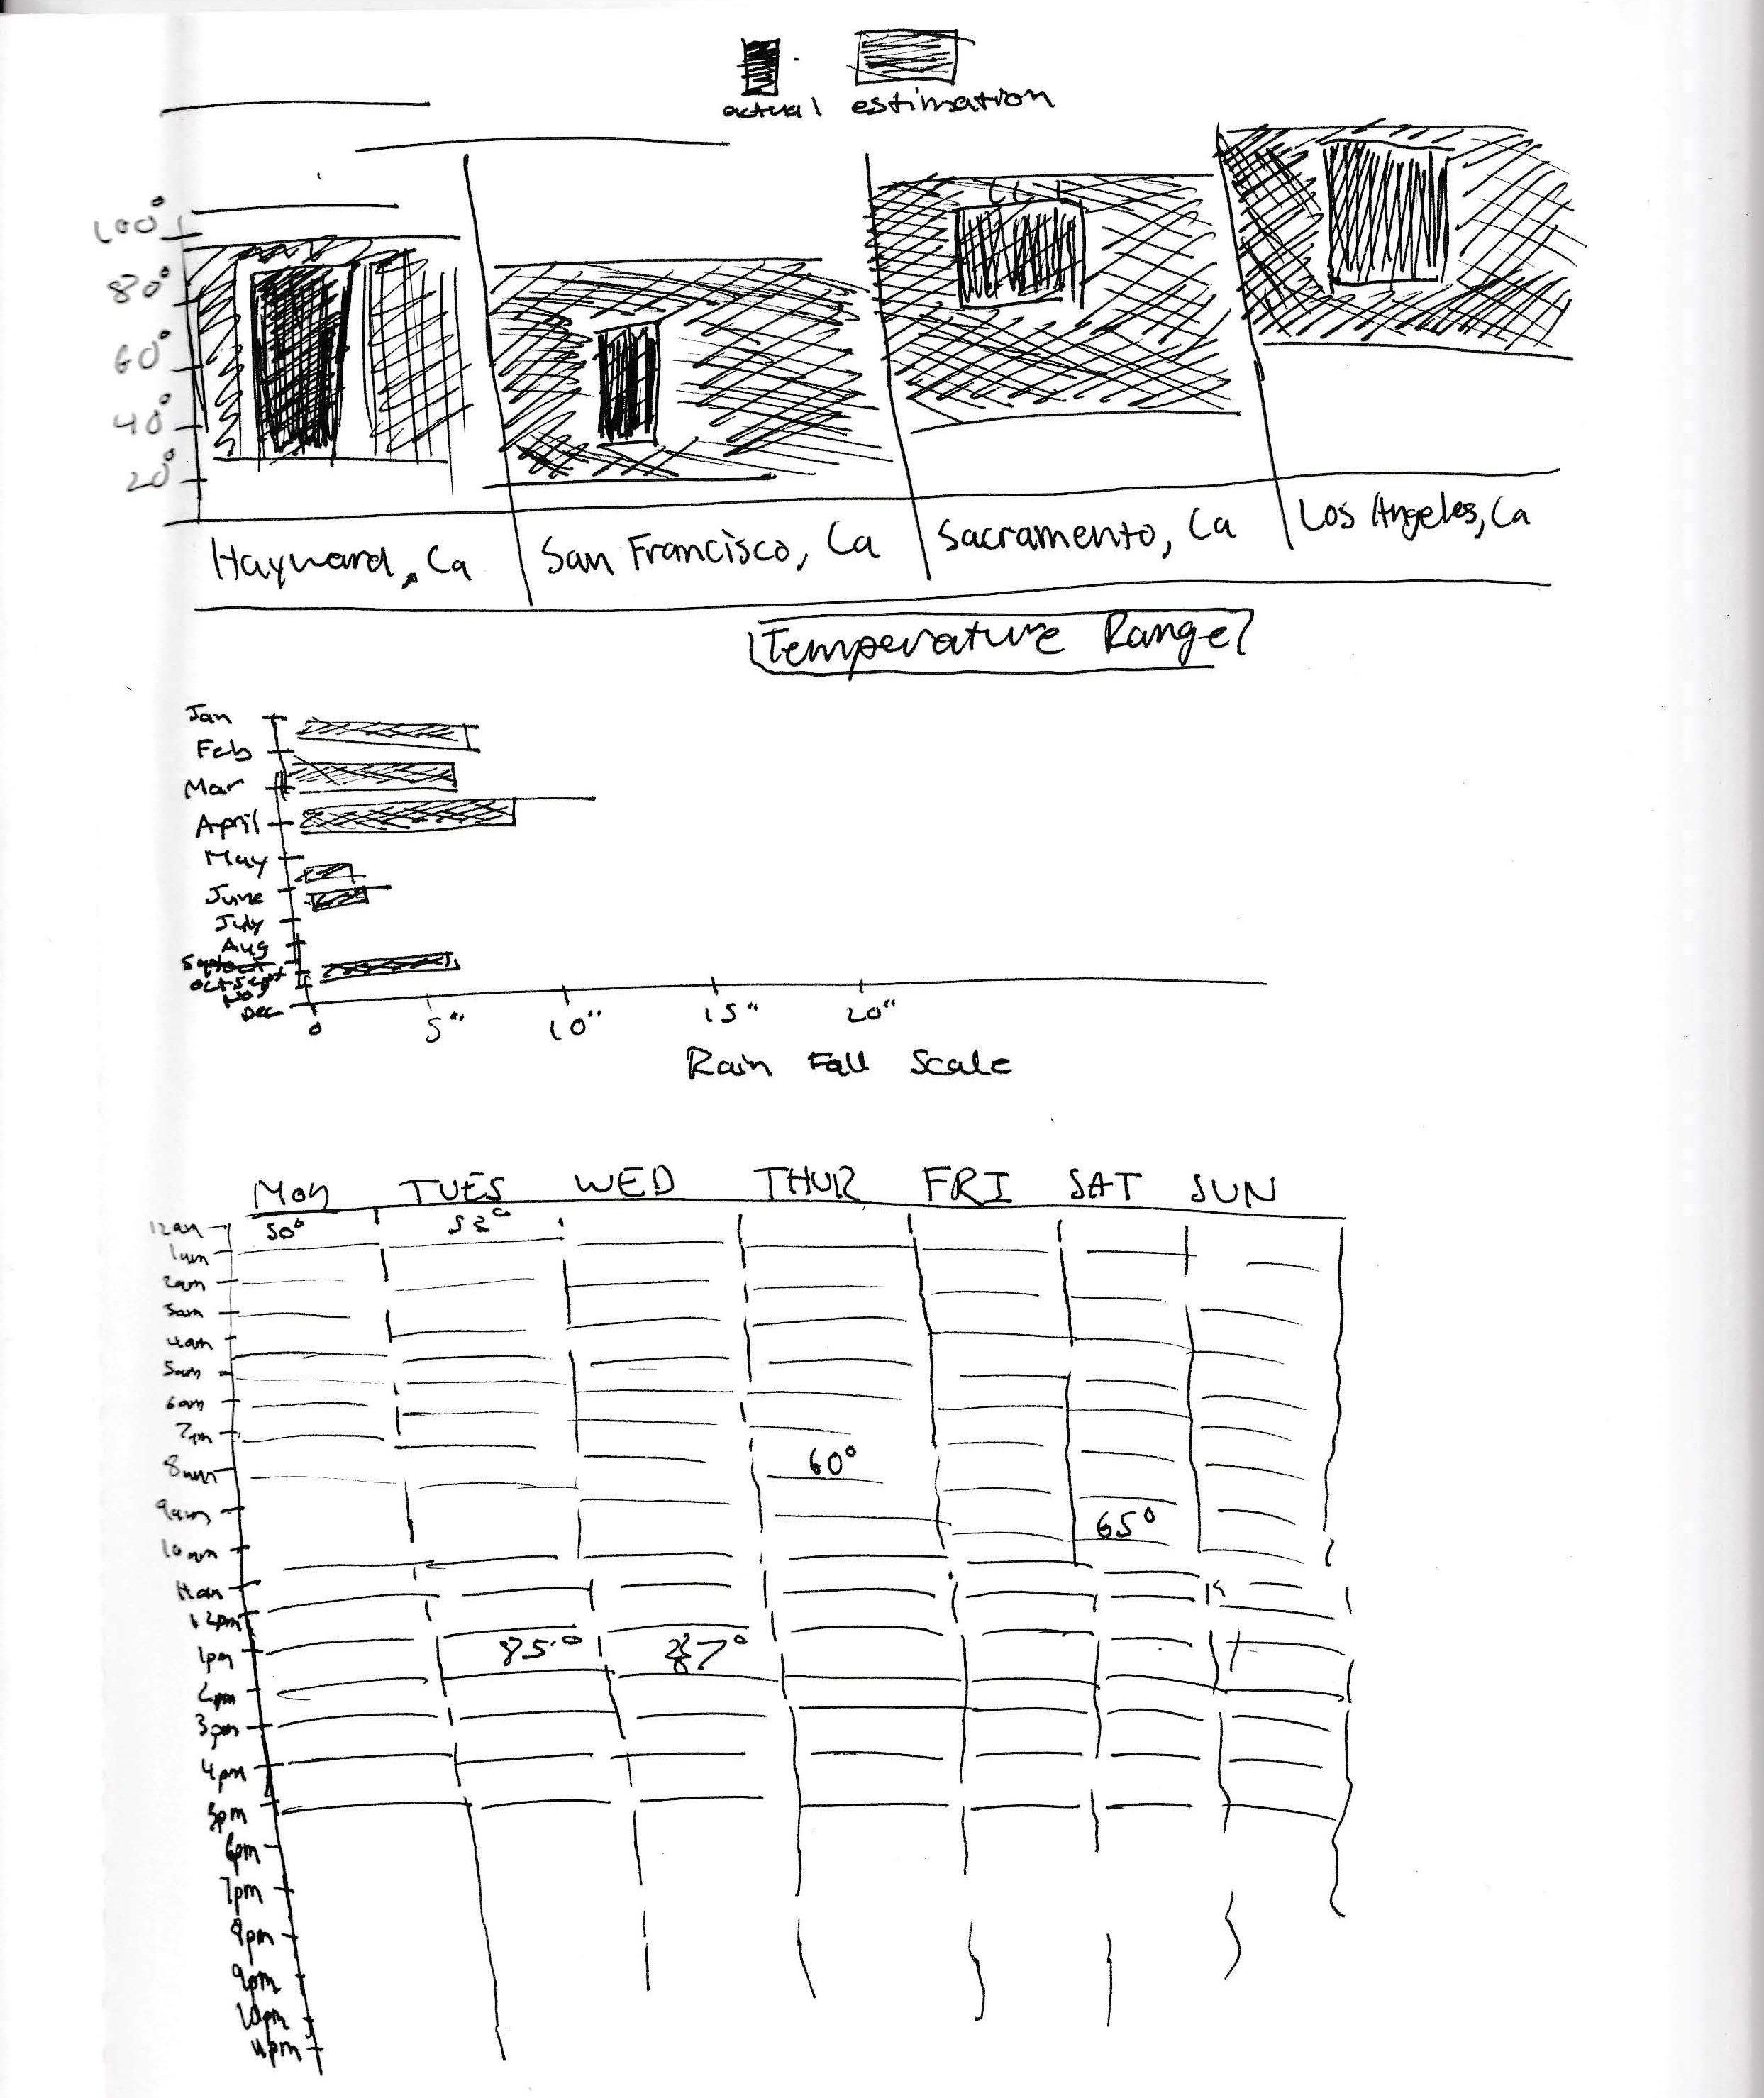 actual estimation
100°
80°
60°
40°
20°
Hayward, Ca San Francisco, Ca Sacramento, Ca Los Angeles, Ca
Temperature Range
Jan
Feb
Mar
April
May
June
July
Aug
Oct Sept
Nov
Dec
0 5" 10" 15" 20"
Rain Fall Scale
Mon TUES WED THUR FRI SAT SUN
12am 50° 53°
1am
2am
3am
4am
5am
6am
7am
8am 60°
9am 65°
10am
11am
12pm
1pm 85° 87°
2pm
3pm
4pm
5pm
6pm
7pm
8pm
9pm
10pm
11pm